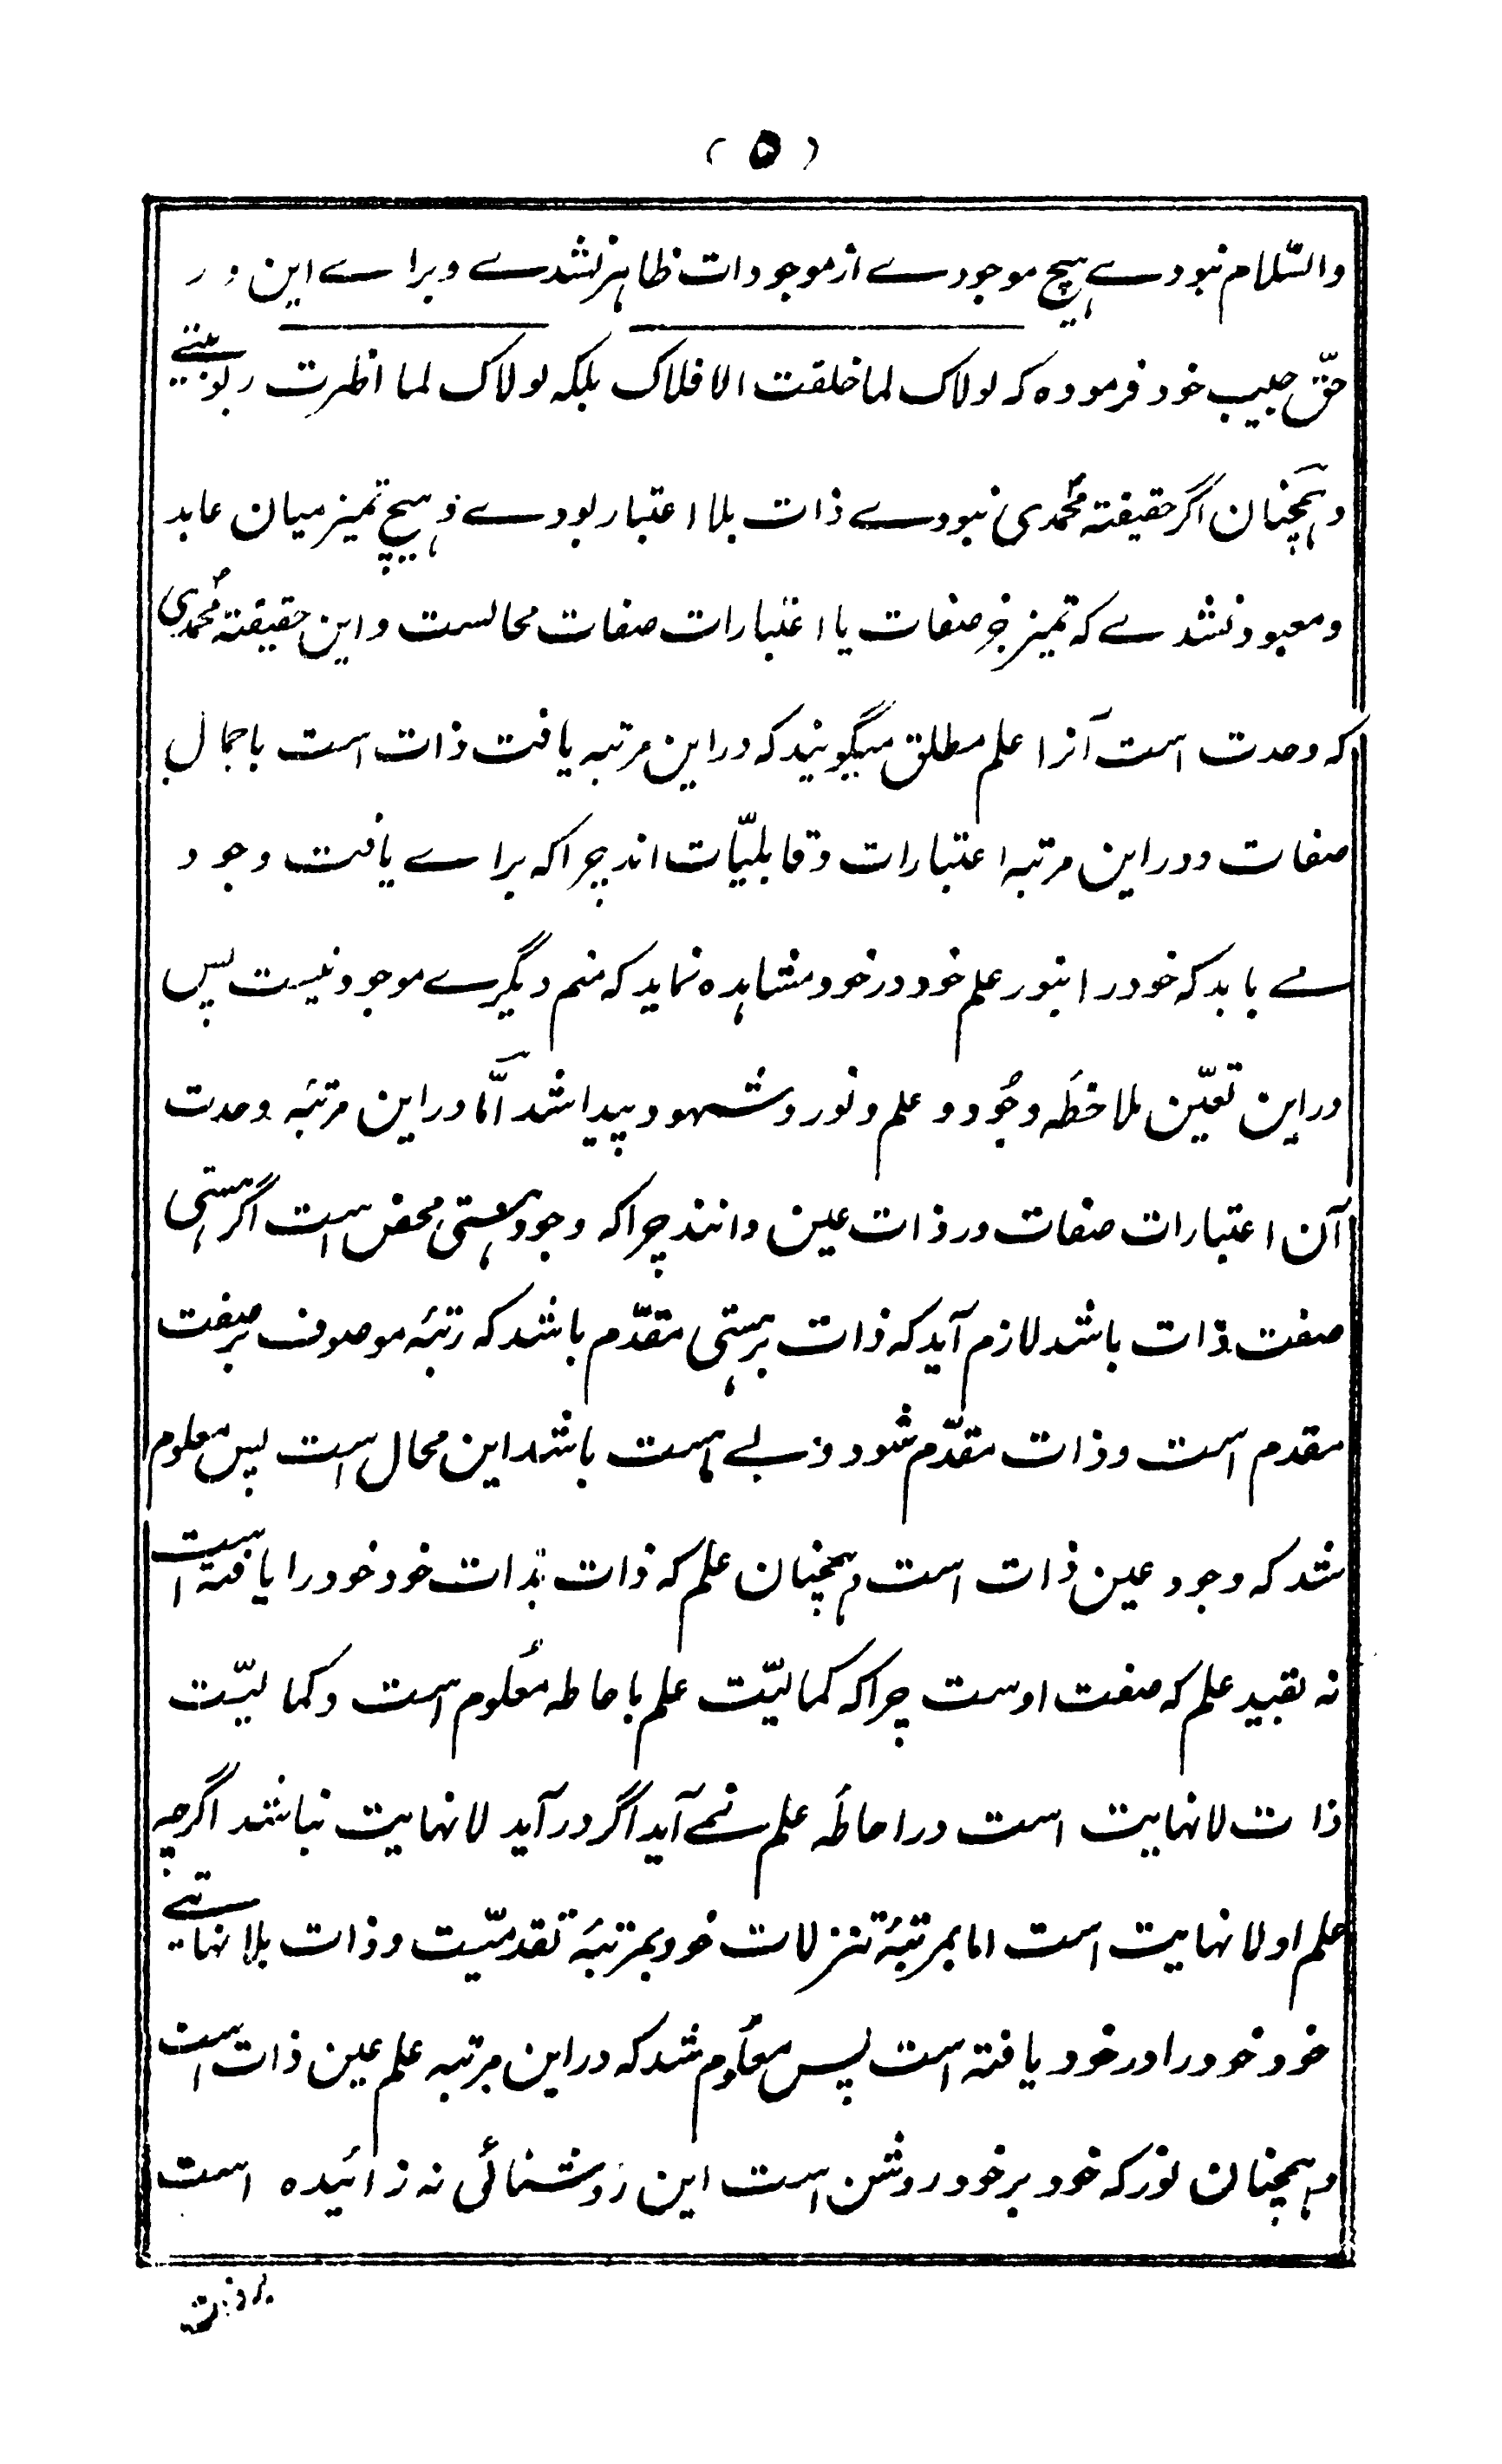 (۵)
والسّلام نبودے ہیچ موجودے از موجودات ظاہر نشدے و براے این در
حقّ حبیب خود فرمودہ کہ لولاک لما خلقت الافلاک بلکہ لولاک لما اظہرت ربوبیتے
و ہمچنان اگر حقیقتہ محمّدی نبودے ذات بلا اعتبار بودے و ہیچ تمیز میان عابد
و معبود نشدے کہ تمیز جز صفات یا اعتبارات صفات محالست و این حقیقتہ محمّدی
کہ وحدت است آنرا علم مطلق میگویند کہ در این مرتبہ یافت ذات است باجمال
صفات و در این مرتبہ اعتبارات و قابلیّات اند چرا کہ براے یافت وجود
مے باید کہ خود را بنور علم خود در خود مشاہدہ نماید کہ منم دیگرے موجود نیست پس
در این تعیّن ملاحظۂ وجُود و علم و نور و شہود پیدا شد امّا در این مرتبۂ وحدت
آن اعتبارات صفات در ذات عین دانند چرا کہ وجود ہستی محض است اگر ہستی
صفت ذات باشد لازم آید کہ ذات بر ہستی مقدّم باشد کہ رتبۂ موصوف بر صفت
مقدم است و ذات مقدّم شود و بے ہست باشد این محال است پس معلوم
شد کہ وجود عین ذات است و ہمچنان علم کہ ذات بذات خود خود را یافتہ است
نہ بقید علم کہ صفت اوست چرا کہ کمالیّت علم باحاطہ معلوم است و کمالیّت
ذات لانہایت است در احاطۂ علم نمے آید اگر در آید لانہایت نباشد اگرچہ
علم او لانہایت است اما بمرتبۂ تنزلات خود بمرتبۂ تقدمیّت و ذات بلا نہایتے
خود خود را در خود یافتہ است پس معلوم شد کہ در این مرتبہ علم عین ذات است
و ہمچنان نور کہ خود بر خود روشن است این روشنائی نہ زائیدہ است
بر ذات